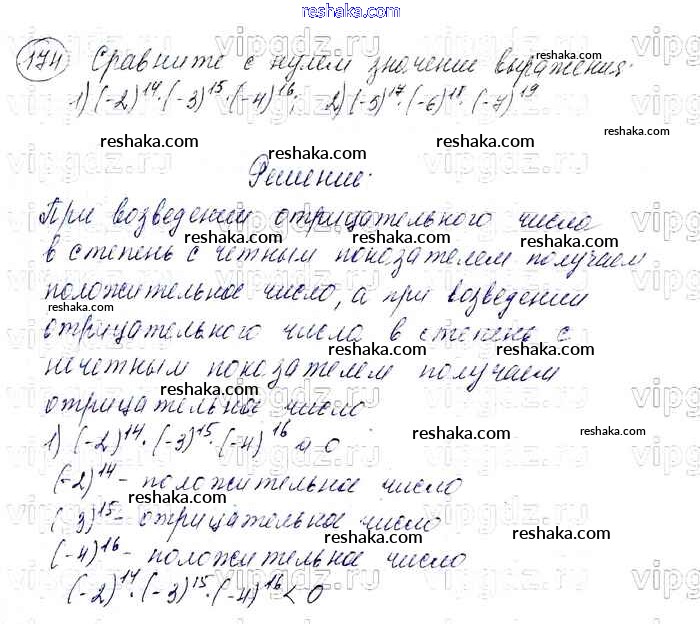 reshaka.com
174 Сравните с нулем значение выражения:
1) (-2)¹⁴·(-3)¹⁵·(-4)¹⁶; 2) (-5)¹⁷·(-6)¹⁸·(-7)¹⁹
Решение.
При возведении отрицательного числа
в степень с четным показателем получаем
положительное число, а при возведении
отрицательного числа в степень с
нечетным показателем получаем
отрицательное число
1) (-2)¹⁴·(-3)¹⁵·(-4)¹⁶ и 0
(-2)¹⁴ - положительное число
(-3)¹⁵ - отрицательное число
(-4)¹⁶ - положительное число
(-2)¹⁴·(-3)¹⁵·(-4)¹⁶ < 0